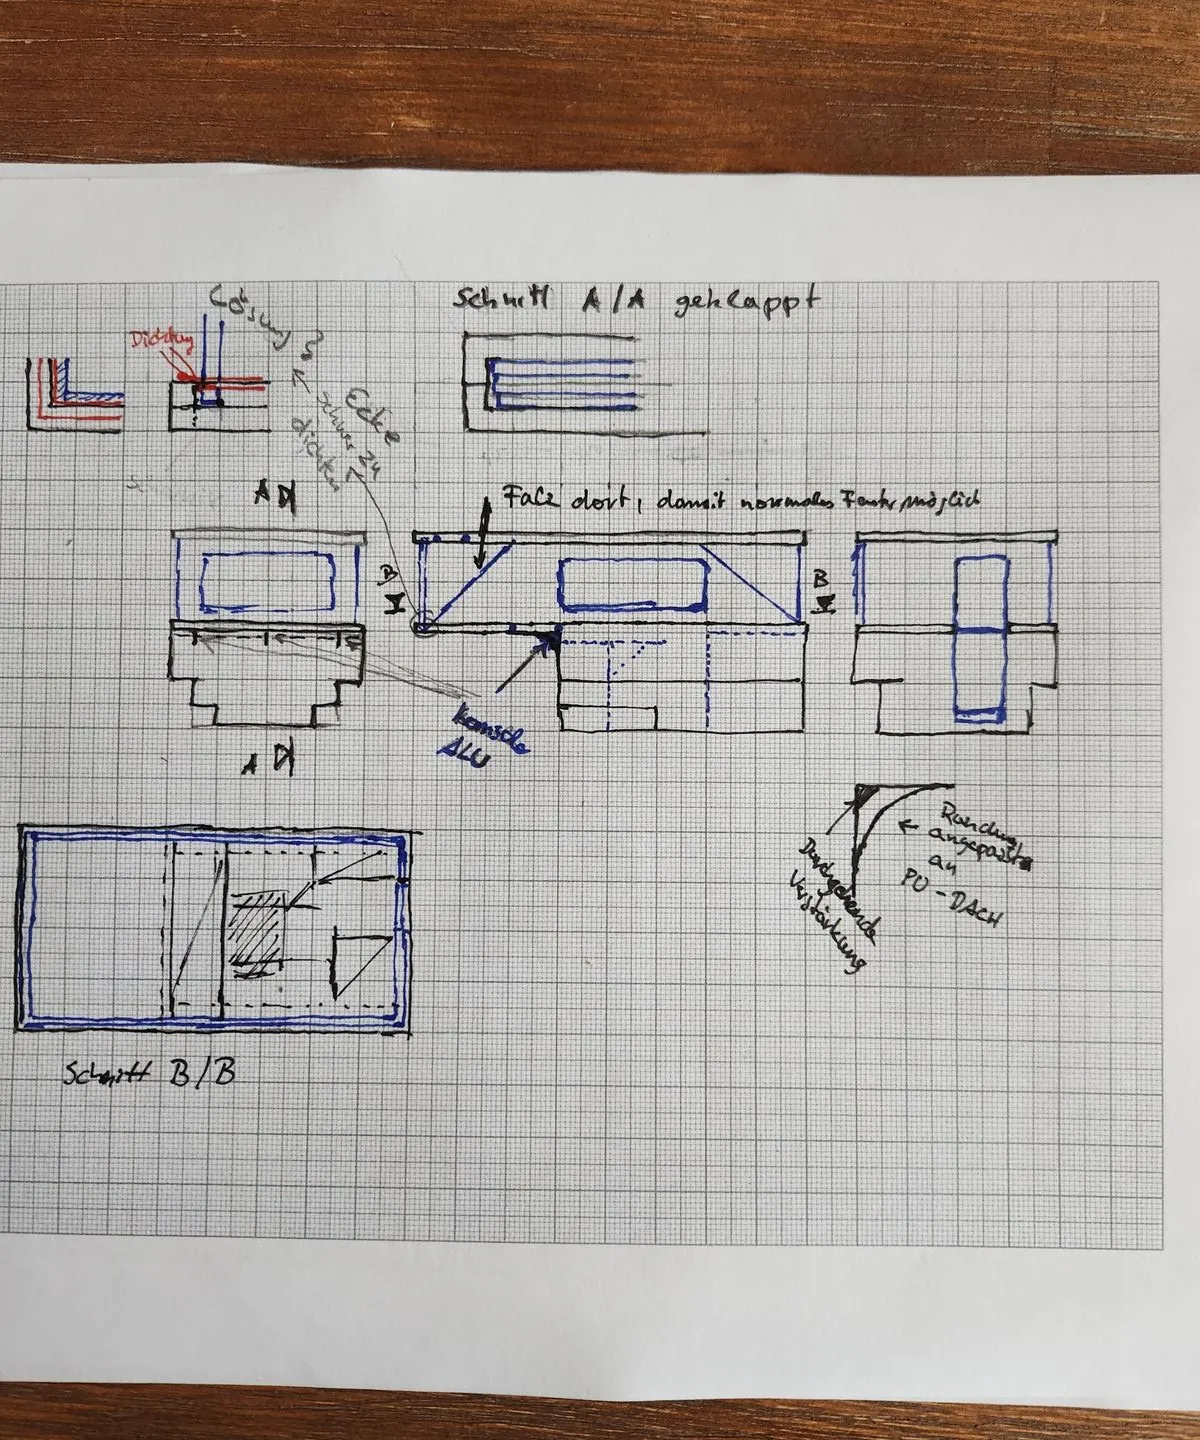 Schnitt A/A geklappt
Lösung ?
Dichtung
Ecke
schwer zu
dichten
A
Falz dort, damit normales Fenster möglich
B
B
Konsole
ALU
A
Rundung
angepasst
an
PU-DACH
Durchgehende
Verstärkung
Schnitt B/B